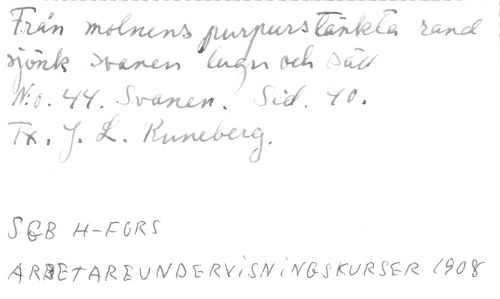 Från molnens purpurstänkta rand
sjönk svanen lugn och säll
N:o. 44. Svanen. Sid. 40.
Tx. J. L. Runeberg.
SGB H-FORS
ARBETAREUNDERVISNINGSKURSER 1908